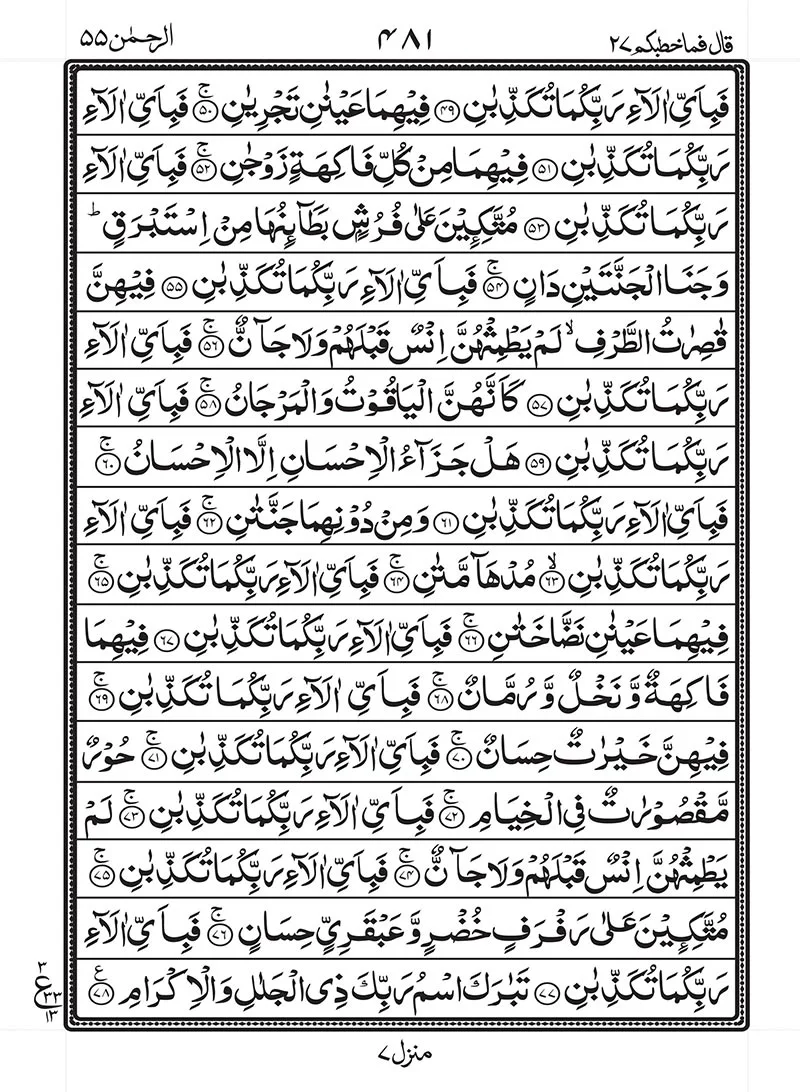 قال فما خطبكم ٢٧ ٤٨١ الرحمٰن ٥٥
فَبِاَيِّ اٰلَآءِ رَبِّكُمَا تُكَذِّبٰنِ ﴿۴۹﴾ فِيْهِمَا عَيْنٰنِ تَجْرِيٰنِ ۚ﴿۵۰﴾ فَبِاَيِّ اٰلَآءِ
رَبِّكُمَا تُكَذِّبٰنِ ﴿۵۱﴾ فِيْهِمَا مِنْ كُلِّ فَاكِهَةٍ زَوْجٰنِ ۚ﴿۵۲﴾ فَبِاَيِّ اٰلَآءِ
رَبِّكُمَا تُكَذِّبٰنِ ﴿۵۳﴾ مُتَّكِـِٕيْنَ عَلٰى فُرُشٍۭ بَطَآىِٕنُهَا مِنْ اِسْتَبْرَقٍ ؕ
وَجَنَا الْجَنَّتَيْنِ دَانٍ ۚ﴿۵۴﴾ فَبِاَيِّ اٰلَآءِ رَبِّكُمَا تُكَذِّبٰنِ ﴿۵۵﴾ فِيْهِنَّ
قٰصِرٰتُ الطَّرْفِ ۙ لَمْ يَطْمِثْهُنَّ اِنْسٌ قَبْلَهُمْ وَلَا جَآنٌّ ۚ﴿۵۶﴾ فَبِاَيِّ اٰلَآءِ
رَبِّكُمَا تُكَذِّبٰنِ ﴿۵۷﴾ كَاَنَّهُنَّ الْيَاقُوْتُ وَالْمَرْجَانُ ۚ﴿۵۸﴾ فَبِاَيِّ اٰلَآءِ
رَبِّكُمَا تُكَذِّبٰنِ ﴿۵۹﴾ هَلْ جَزَآءُ الْاِحْسَانِ اِلَّا الْاِحْسَانُ ۚ﴿۶۰﴾
فَبِاَيِّ اٰلَآءِ رَبِّكُمَا تُكَذِّبٰنِ ﴿۶۱﴾ وَمِنْ دُوْنِهِمَا جَنَّتٰنِ ۚ﴿۶۲﴾ فَبِاَيِّ اٰلَآءِ
رَبِّكُمَا تُكَذِّبٰنِ ۙ﴿۶۳﴾ مُدْهَآمَّتٰنِ ۚ﴿۶۴﴾ فَبِاَيِّ اٰلَآءِ رَبِّكُمَا تُكَذِّبٰنِ ۚ﴿۶۵﴾
فِيْهِمَا عَيْنٰنِ نَضَّاخَتٰنِ ۚ﴿۶۶﴾ فَبِاَيِّ اٰلَآءِ رَبِّكُمَا تُكَذِّبٰنِ ﴿۶۷﴾ فِيْهِمَا
فَاكِهَةٌ وَّنَخْلٌ وَّرُمَّانٌ ۚ﴿۶۸﴾ فَبِاَيِّ اٰلَآءِ رَبِّكُمَا تُكَذِّبٰنِ ۚ﴿۶۹﴾
فِيْهِنَّ خَيْرٰتٌ حِسَانٌ ۚ﴿۷۰﴾ فَبِاَيِّ اٰلَآءِ رَبِّكُمَا تُكَذِّبٰنِ ۚ﴿۷۱﴾ حُوْرٌ
مَّقْصُوْرٰتٌ فِي الْخِيَامِ ۚ﴿۷۲﴾ فَبِاَيِّ اٰلَآءِ رَبِّكُمَا تُكَذِّبٰنِ ۚ﴿۷۳﴾ لَمْ
يَطْمِثْهُنَّ اِنْسٌ قَبْلَهُمْ وَلَا جَآنٌّ ۚ﴿۷۴﴾ فَبِاَيِّ اٰلَآءِ رَبِّكُمَا تُكَذِّبٰنِ ۚ﴿۷۵﴾
مُتَّكِـِٕيْنَ عَلٰى رَفْرَفٍ خُضْرٍ وَّعَبْقَرِيٍّ حِسَانٍ ۚ﴿۷۶﴾ فَبِاَيِّ اٰلَآءِ
رَبِّكُمَا تُكَذِّبٰنِ ﴿۷۷﴾ تَبٰرَكَ اسْمُ رَبِّكَ ذِي الْجَلٰلِ وَالْاِكْرَامِ ﴿۷۸﴾ ع
٣
ع ٣٣
١٣
منزل ٧